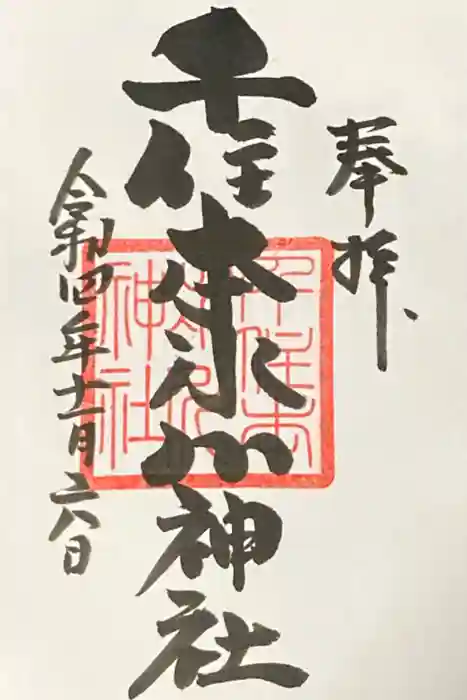 奉拝
千住本氷川神社
令和四年十一月六日
千住本
氷川
神社